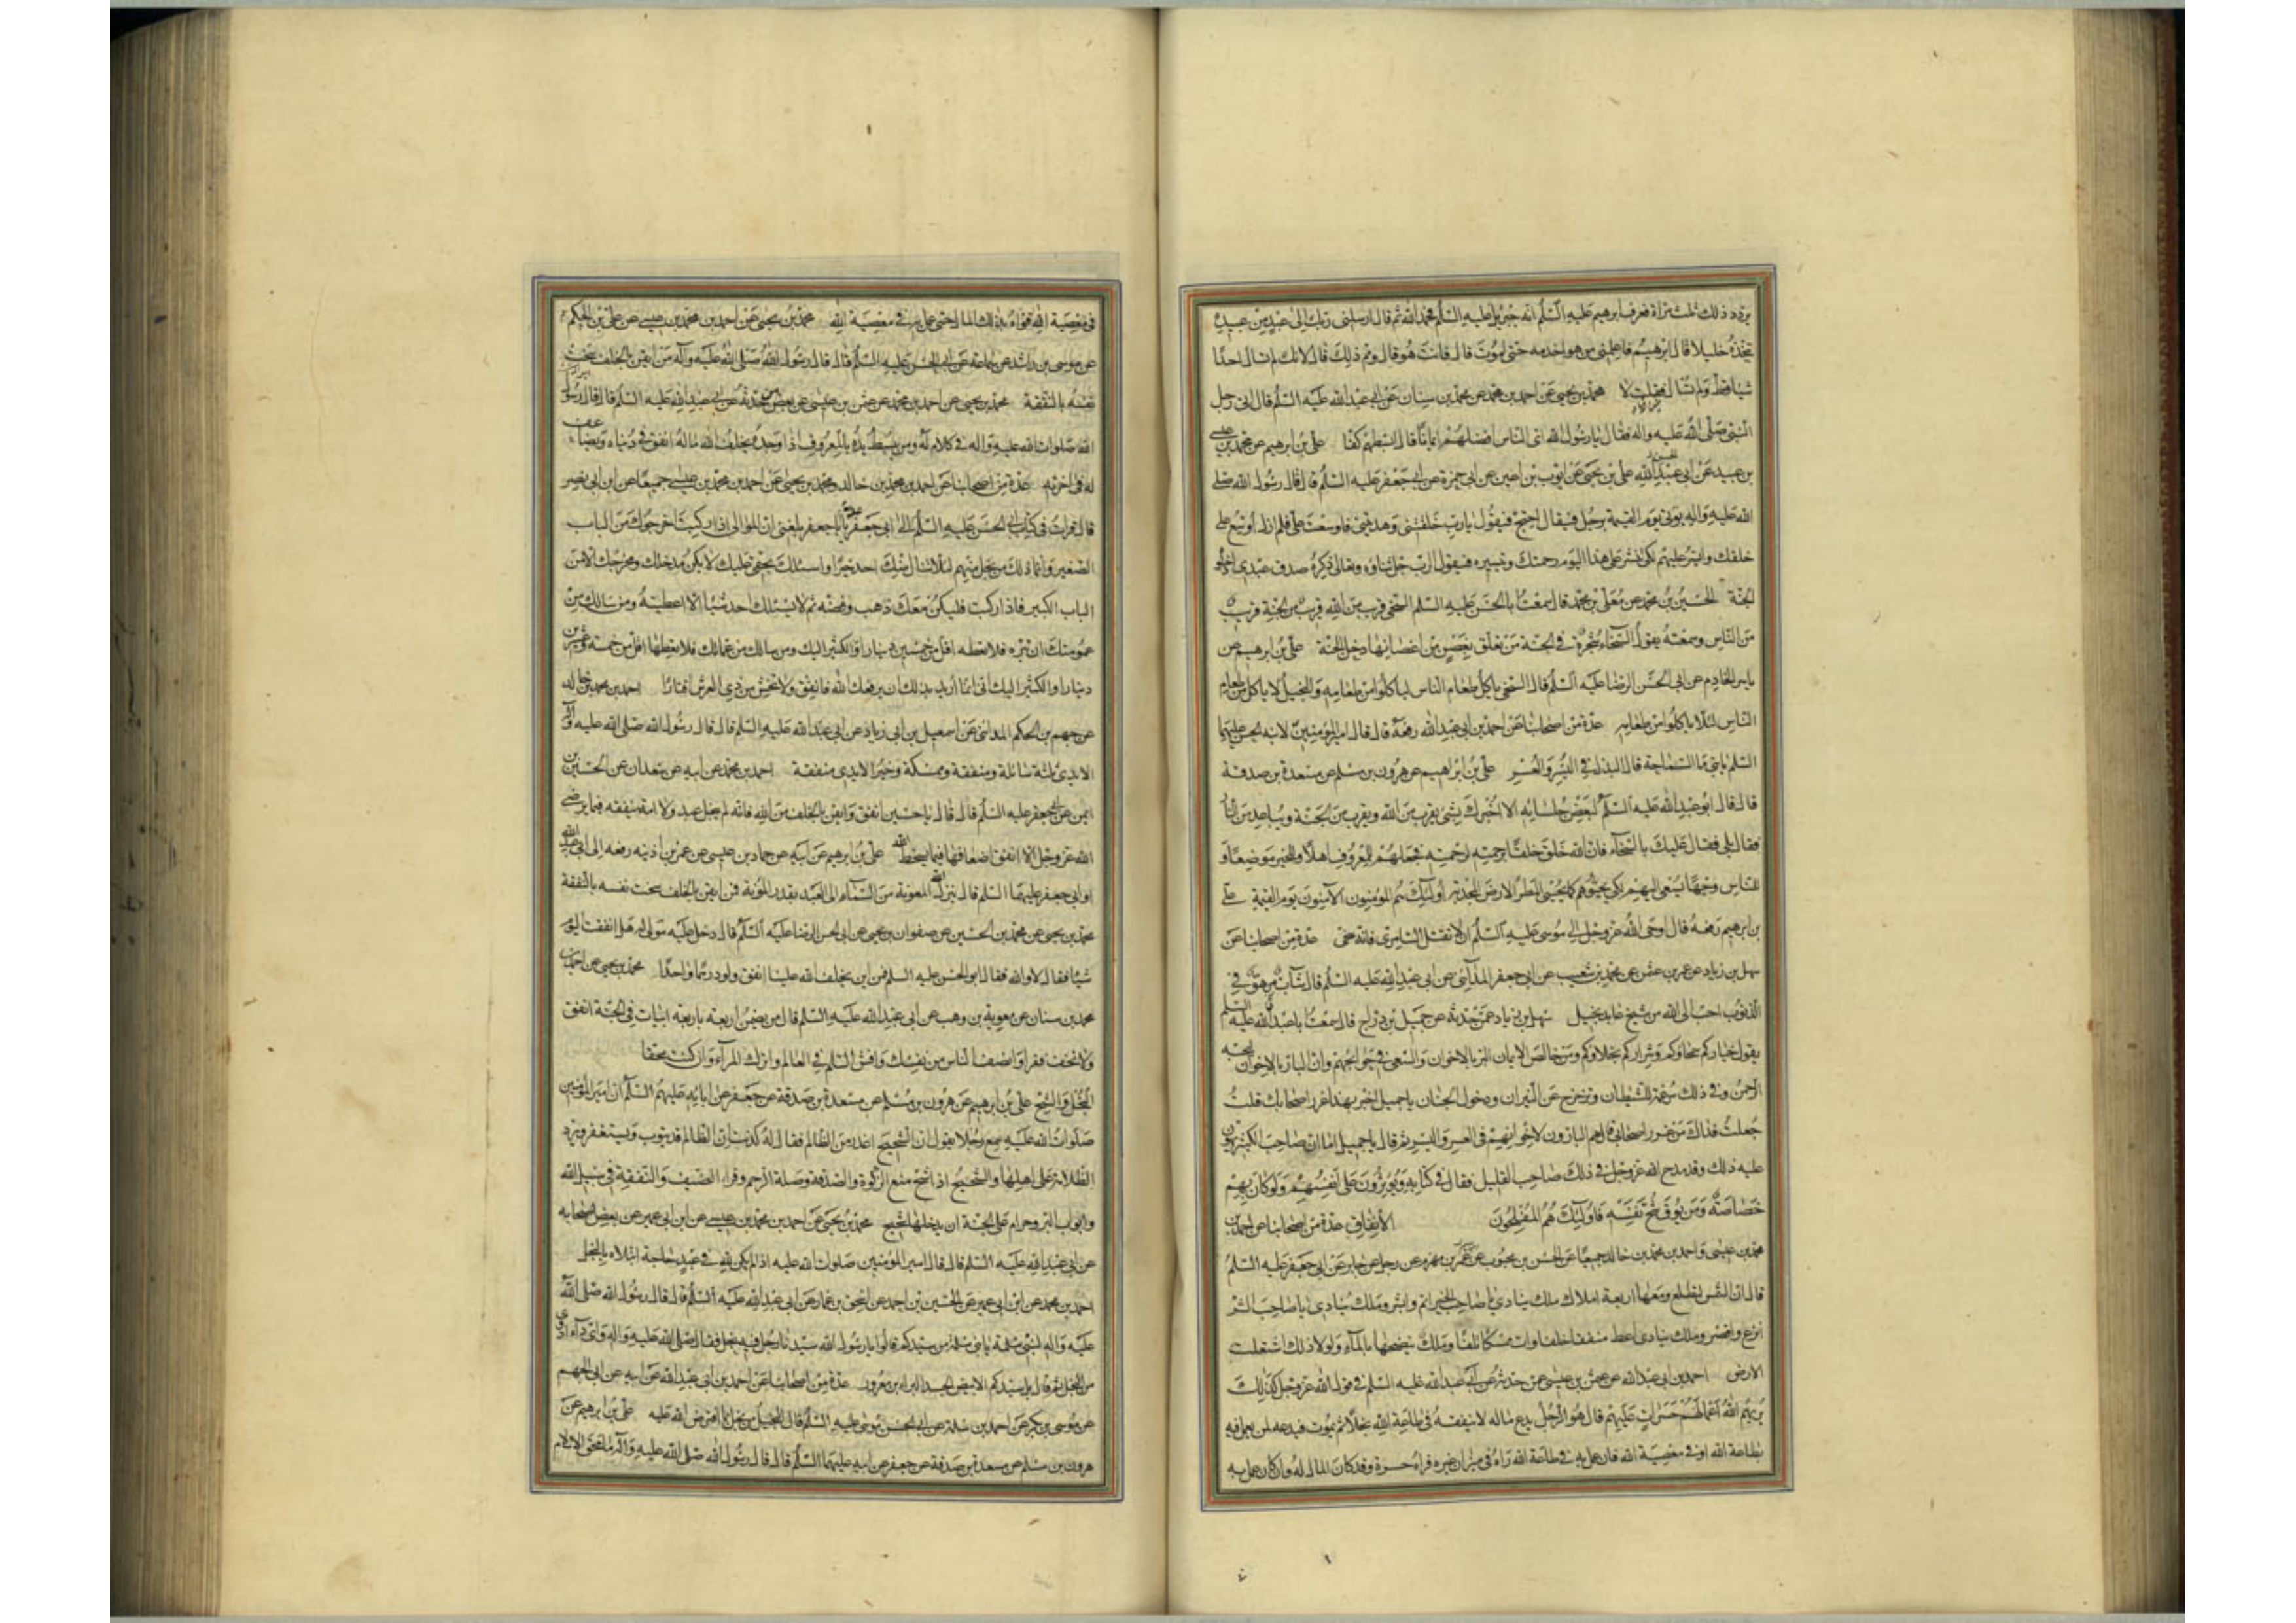 يردد ذلك ثلث مرّاة فعرف ابرهيم عليه السّلم انه جبرئيل عليه السّلم فحمد الله ثم قال ارسلنى ربك الى عبد من عبيده
يتخذه خليلا قال ابرهيم فاعلمنى من هو اخدمه حتى اموت قال فانت هو قال ومم ذلك قال لانك لم تسال احدا
شيا قط ولم تسال فقلت لا محمّد بن يحيى عن احمد بن محمد عن محمد بن سنان عن ابى عبد الله عليه السّلم قال اتى رجل
النّبى صلّى الله عليه واله فقال يا رسُول الله اىّ الناس افضلهم ايمانا قال ابسطهم كفّا علىّ بن ابرهيم عن محمد بن عيسى
بن عبيد عن ابى عبد الله علىّ بن يحيى عن ايوب بن اعين عن ابى حمزة عن ابى جعفر عليه السّلم قال قال رسُول الله صلى
الله عليه واله يؤتى يوم القيمة برجل فيقال احتج فيقُول يا رب خلقتنى وهديتنى فاوسعت علىّ فلم ازل اوسع على
خلقك وايسر عليهم لكى تنشر على هذا اليوم رحمتك وتيسره فيقول الرّب جل ثناؤه وتعالى ذكره صدق عبدى ادخلوه
الجنّة الحسين بن محمّد عن معلى بن محمّد قال سمعت ابا الحسن عليه السّلم السخى قريب من الله قريب من الجنة قريب
من النّاس وسمعته يقول السّخاء شجرة فى الجنة من تعلق بغصن من اغصانها دخل الجنّة علىّ بن ابرهيم عن
ياسر الخادم عن ابى الحسن الرضا عليه السّلم قال السخى ياكل طعام الناس لياكلوا من طعامه والبخيل لا ياكل من طعام
النّاس لئلا ياكلوا من طعامه عدة من اصحابنا عن احمد بن ابى عبد الله رفعه قال قال امير المؤمنين لابنه الحسن عليهما
السّلم يا بنى ما السّماحة قال البذل فى اليُسر والعُسر علىّ بن ابراهيم عن هرون بن مسلم عن مسعدة بن صدقة
قال قال ابو عبد الله عليه السّلم لبعض جلسائه الا اخبرك بشئ يقرب من الله ويقرب من الجنّة ويباعد من النار
فقال بلى فقال عليك بالسّخاء فان الله خلق خلقا برحمته لرحمته فجعلهم للمعروف اهلا وللخير موضعا و
للناس وجها يسعى اليهم لكى يحيوهم كما يحيى المطر الارض المجدبة اولئك هم المؤمنون الآمنون يوم القيمة على
بن ابرهيم رفعه قال اوحى الله عز وجل الى موسى عليه السّلم ان لا تقتل السّامرى فانه سخى عدة من اصحابنا عن
سهل بن زياد عن عمرو بن عثمن عن محمّد بن شعيب عن ابى جعفر المدائنى عن ابى عبد الله عليه السّلم قال شاب مرهق فى
الذنوب احب الى الله من شيخ عابد بخيل سهل بن زياد عمّن حدثه عن جميل بن دراج قال سمعت ابا عبد الله عليه السّلم
يقول خياركم سمحاؤكم وشراركم بخلاؤكم ومن خالص الايمان البر بالاخوان والسّعى فى حوائجهم وان البار بالاخوان ليحبه
الرّحمن وفى ذلك مرغمة للشيطان وتزحزح عن النيران ودخول الجنان يا جميل اخبر بهذا غرر اصحابك قلت
جعلت فداك من غرر اصحابى قال هم البارون لاخوانهم فى العسر واليسر ثم قال يا جميل اما ان صاحب الكثير يهون
عليه ذلك وقد مدح الله عز وجل فى ذلك صاحب القليل فقال فى كتابه ويؤثرون على انفسهم ولو كان بهم
خصاصة ومن يوق شح نفسه فاولئك هم المفلحون الانفاق عدة من اصحابنا عن احمد بن
محمّد بن عيسى واحمد بن محمّد بن خالد جميعا عن الحسن بن محبوب عن عمر بن مهزم عن رجل عن جابر عن ابى جعفر عليه السّلم
قال ان الشّمس لتطلع ومعها اربعة املاك ملك ينادى يا صاحب الخير اتم وابشر وملك ينادى يا صاحب الشر
انزع واقصر وملك ينادى اعط منفقا خلفا وات ممسكا تلفا وملك ينضحها بالماء ولولا ذلك اشتعلت
الارض احمد بن ابى عبد الله عن عثمن بن عيسى عمن حدثه عن ابى عبد الله عليه السّلم فى قول الله عز وجل كذلك
يريهم الله اعمالهم حسرات عليهم قال هو الرّجل يدع ماله لا ينفقه فى طاعة الله بخلا ثم يموت فيدعه لمن يعمل فيه
بطاعة الله او فى معصية الله فان عمل به فى طاعة الله راه فى ميزان غيره فراه حسرة وقد كان المال له وان كان عمل به
فى معصية الله قواه بذلك المال حتى عمل به فى معصية الله محمّد بن يحيى عن احمد بن محمّد بن عيسى عن على بن الحكم
عن موسى بن راشد عن سماعة عن ابى الحسن عليه السّلم قال قال رسُول الله صلى الله عليه وآله من ايقن بالخلف سخت
نفسه بالنّفقة محمّد بن يحيى عن احمد بن محمّد عن عثمن بن عيسى عن بعض من حدثه عن ابى عبد الله عليه السّلم قال قال رسُول
الله صلوات الله عليه واله فى كلام له ومن يبسط يده بالمعروف اذا وجده يخلف الله ماله انفق فى دنياه ويضاعف
له فى اخرته عدة من اصحابنا عن احمد بن محمّد بن خالد ومحمّد بن يحيى عن احمد بن محمّد بن عيسى جميعا عن ابن ابى نصر
قال قرات فى كتاب ابى الحسن عليه السّلم الى ابى جعفر يا ابا جعفر بلغنى ان الموالى اذا ركبت اخرجوك من الباب
الصّغير وانما ذلك من بخل منهم لئلا ينال منك احد خيرا واسئلك بحقى عليك لا يكن مدخلك ومخرجك الا من
الباب الكبير فاذا ركبت فليكن معك ذهب وفضة ثم لا يسئلك احد شيا الا اعطيته ومن سالك من
عمومتك ان تبره فلا تعطه اقل من خمسين دينارا والكثير اليك ومن سالك من عماتك فلا تعطها اقل من خمسة وعشرين
دينارا والكثير اليك انى انما اريد بذلك ان يرفعك الله فانفق ولا تخش من ذى العرش اقتارا احمد بن محمد بن خالد
عن جهم بن الحكم المدائنى عن اسمعيل بن ابى زياد عن ابى عبد الله عليه السّلم قال قال رسُول الله صلى الله عليه وآله
الايدى ثلثة سائلة ومنفقة وممسكة وخير الايدى منفقة احمد بن محمّد عن ابيه عن سعدان عن الحسين بن
ايمن عن ابى جعفر عليه السّلم قال قال يا حسين انفق وايقن بالخلف من الله فانه لم يبخل عبد ولا امة بنفقة فيما يرضى
الله عز وجل الا انفق اضعافها فيما يسخط الله علىّ بن ابرهيم عن ابيه عن حماد بن عيسى عن عمر بن اذينه رفعه الى ابى عبد الله
او ابى جعفر عليهما السّلم قال ينزل الله المعونة من السّماء الى العبد بقدر المؤنة فمن ايقن بالخلف سخت نفسه بالنفقة
محمّد بن يحيى عن محمّد بن الحسين عن صفوان بن يحيى عن ابى الحسن الرضا عليه السّلم قال دخل عليه مولى له هل انفقت اليوم
شيئا فقال لا والله فقال ابو الحسن عليه السلم فمن اين يخلف الله علينا انفق ولو درهما واحدا محمّد بن يحيى عن احمد بن
محمد بن سنان عن معوية بن وهب عن ابى عبد الله عليه السّلم قال من يضمن اربعة باربعة ابيات فى الجنّة انفق
ولا تخف فقرا وانصف الناس من نفسك وافش السّلم فى العالم واترك المراء وان كنت محقا
البُخل والشّح علىّ بن ابرهيم عن هرون بن مسلم عن مسعدة بن صدقة عن جعفر عن ابائه عليهم السّلم ان امير المؤمنين
صلوات الله عليه سمع رجلا يقول ان الشحيح اغدر من الظالم فقال له كذبت ان الظالم قد يتوب ويستغفر ويرد
الظلامة على اهلها والشحيح اذا شح منع الزكوة والصّدقة وصلة الرّحم وقراء الضيف والنفقة فى سبيل الله
وابواب البر وحرام على الجنّة ان يدخلها شحيح محمّد بن يحيى عن احمد بن محمّد بن عيسى عن ابن ابى عمير عن بعض اصحابه
عن ابى عبد الله عليه السّلم قال قال امير المؤمنين صلوات الله عليه اذا لم يكن لله فى عبد حاجة ابتلاه بالبخل
احمد بن محمّد عن ابن ابى عمير عن الحسين بن احمد عن اسحق بن عمار عن ابى عبد الله عليه السّلم قال قال رسُول الله صلى الله
عليه واله لبنى سلمة يا بنى سلمة من سيدكم قالوا يا رسُول الله سيّدنا رجل فيه بخل فقال صلى الله عليه واله واى داء ادوى
من البخل ثم قال بل سيدكم الابيض الجسد البراء بن معرور عدة من اصحابنا عن احمد بن ابى عبد الله عن ابيه عن ابى الجهم
عن موسى بن بكر عن احمد بن سلمة عن ابى الحسن موسى عليه السّلم قال البخيل من بخل بما افترض الله عليه علىّ بن ابرهيم عن
هرون بن مسلم عن مسعدة بن صدقة عن جعفر عن ابيه عليهما السّلم قال قال رسُول الله صلى الله عليه وآله ما محق الاسلام